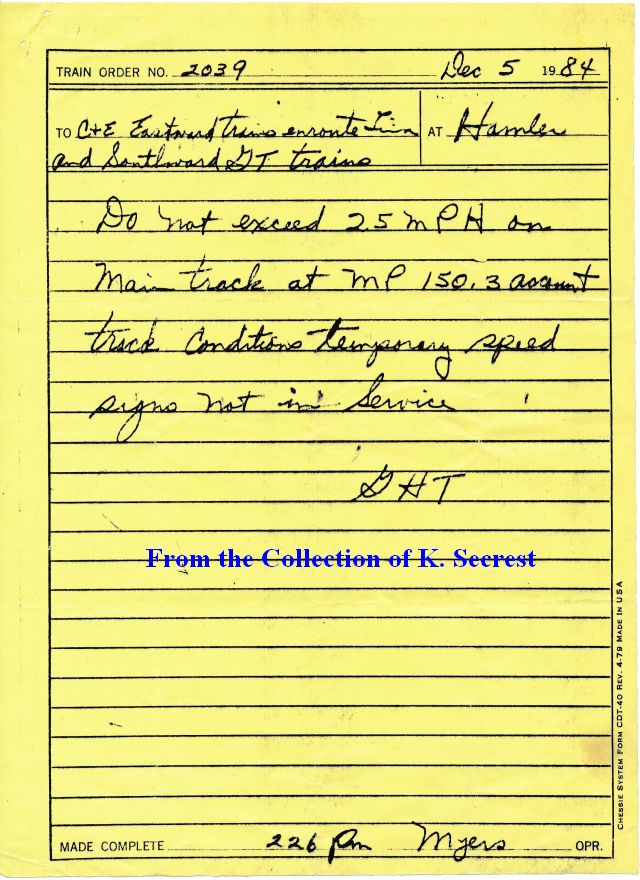 TRAIN ORDER NO. 2039 Dec 5 1984
TO C+E Eastward trains enroute AT Hamler
and Southward GT trains
Do not exceed 25 MPH on
Main track at MP 150.3 account
track Conditions temporary speed
signs not in Service
GHT
From the Collection of K. Secrest
MADE COMPLETE 226 Pm Myers OPR.
CHESSIE SYSTEM FORM CDT-40 REV. 4-79 MADE IN USA